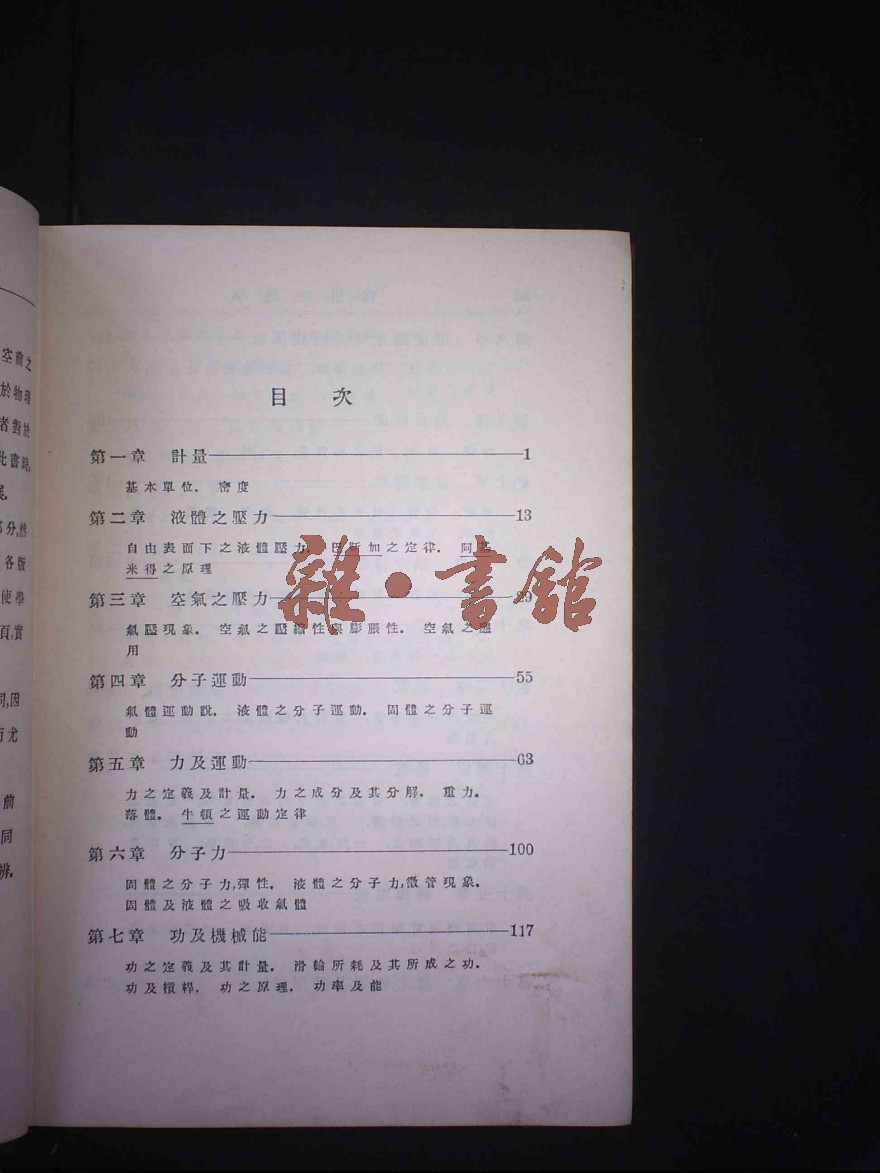 空前之
於物理
者對於
此書時,
展.
部分,然
各版
使學
頁,實
同,因
而尤
前
同
辨.
目 次
第一章 計量 1
基本單位. 密度
第二章 液體之壓力 13
自由表面下之液體壓力. 巴斯加之定律. 阿基
米得之原理
第三章 空氣之壓力 29
氣壓現象. 空氣之壓縮性與膨脹性. 空氣之應
用
第四章 分子運動 55
氣體運動說. 液體之分子運動. 固體之分子運
動
第五章 力及運動 63
力之定義及計量. 力之成分及其分解. 重力.
落體. 牛頓之運動定律
第六章 分子力 100
固體之分子力,彈性. 液體之分子力,微管現象.
固體及液體之吸收氣體
第七章 功及機械能 117
功之定義及其計量. 滑輪所耗及其所成之功.
功及槓桿. 功之原理. 功率及能
雜·書館